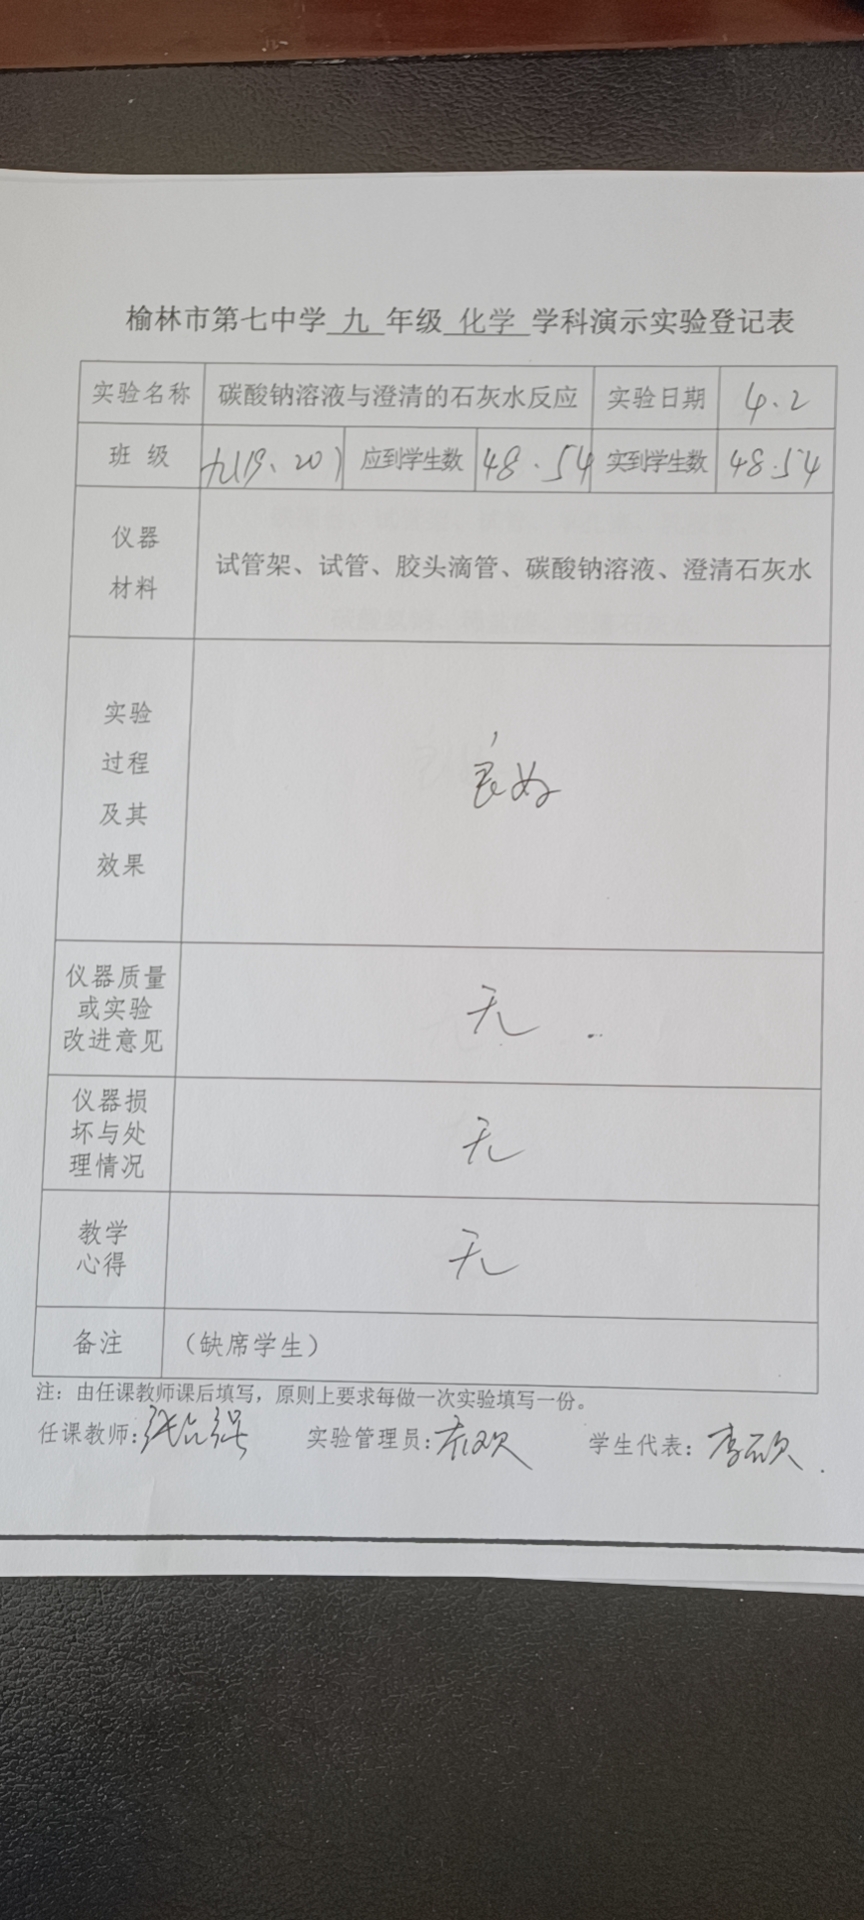 榆林市第七中学 九 年级 化学 学科演示实验登记表
实验名称 碳酸钠溶液与澄清的石灰水反应 实验日期 4.2
班 级 九(19、20) 应到学生数 48.54 实到学生数 48.54
仪器
材料
试管架、试管、胶头滴管、碳酸钠溶液、澄清石灰水
实验
过程
及其
效果
良好
仪器质量
或实验
改进意见
无
仪器损
坏与处
理情况
无
教学
心得
无
备注 (缺席学生)
注：由任课教师课后填写，原则上要求每做一次实验填写一份。
任课教师: 实验管理员: 学生代表: 李欣